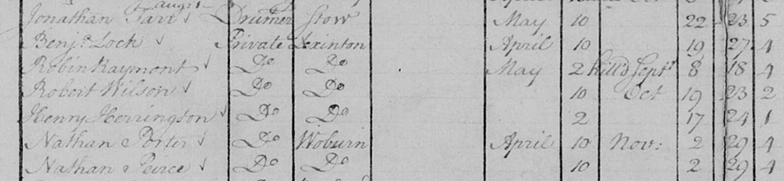 Jonathan Farr Drumer Stow May 10 22 23 5
Benj.ª Lock Private Lexinton April 10 19 27 4
Robin Raymont Do Do May 2 kill'd Sept.r 8 18 4
Robert Wilson Do Do 10 Oct 19 23 2
Henry Herrington Do Do 2 17 24 1
Nathan Porter Do Woburn April 10 Nov: 2 29 4
Nathan Peirce Do Do 10 2 29 4